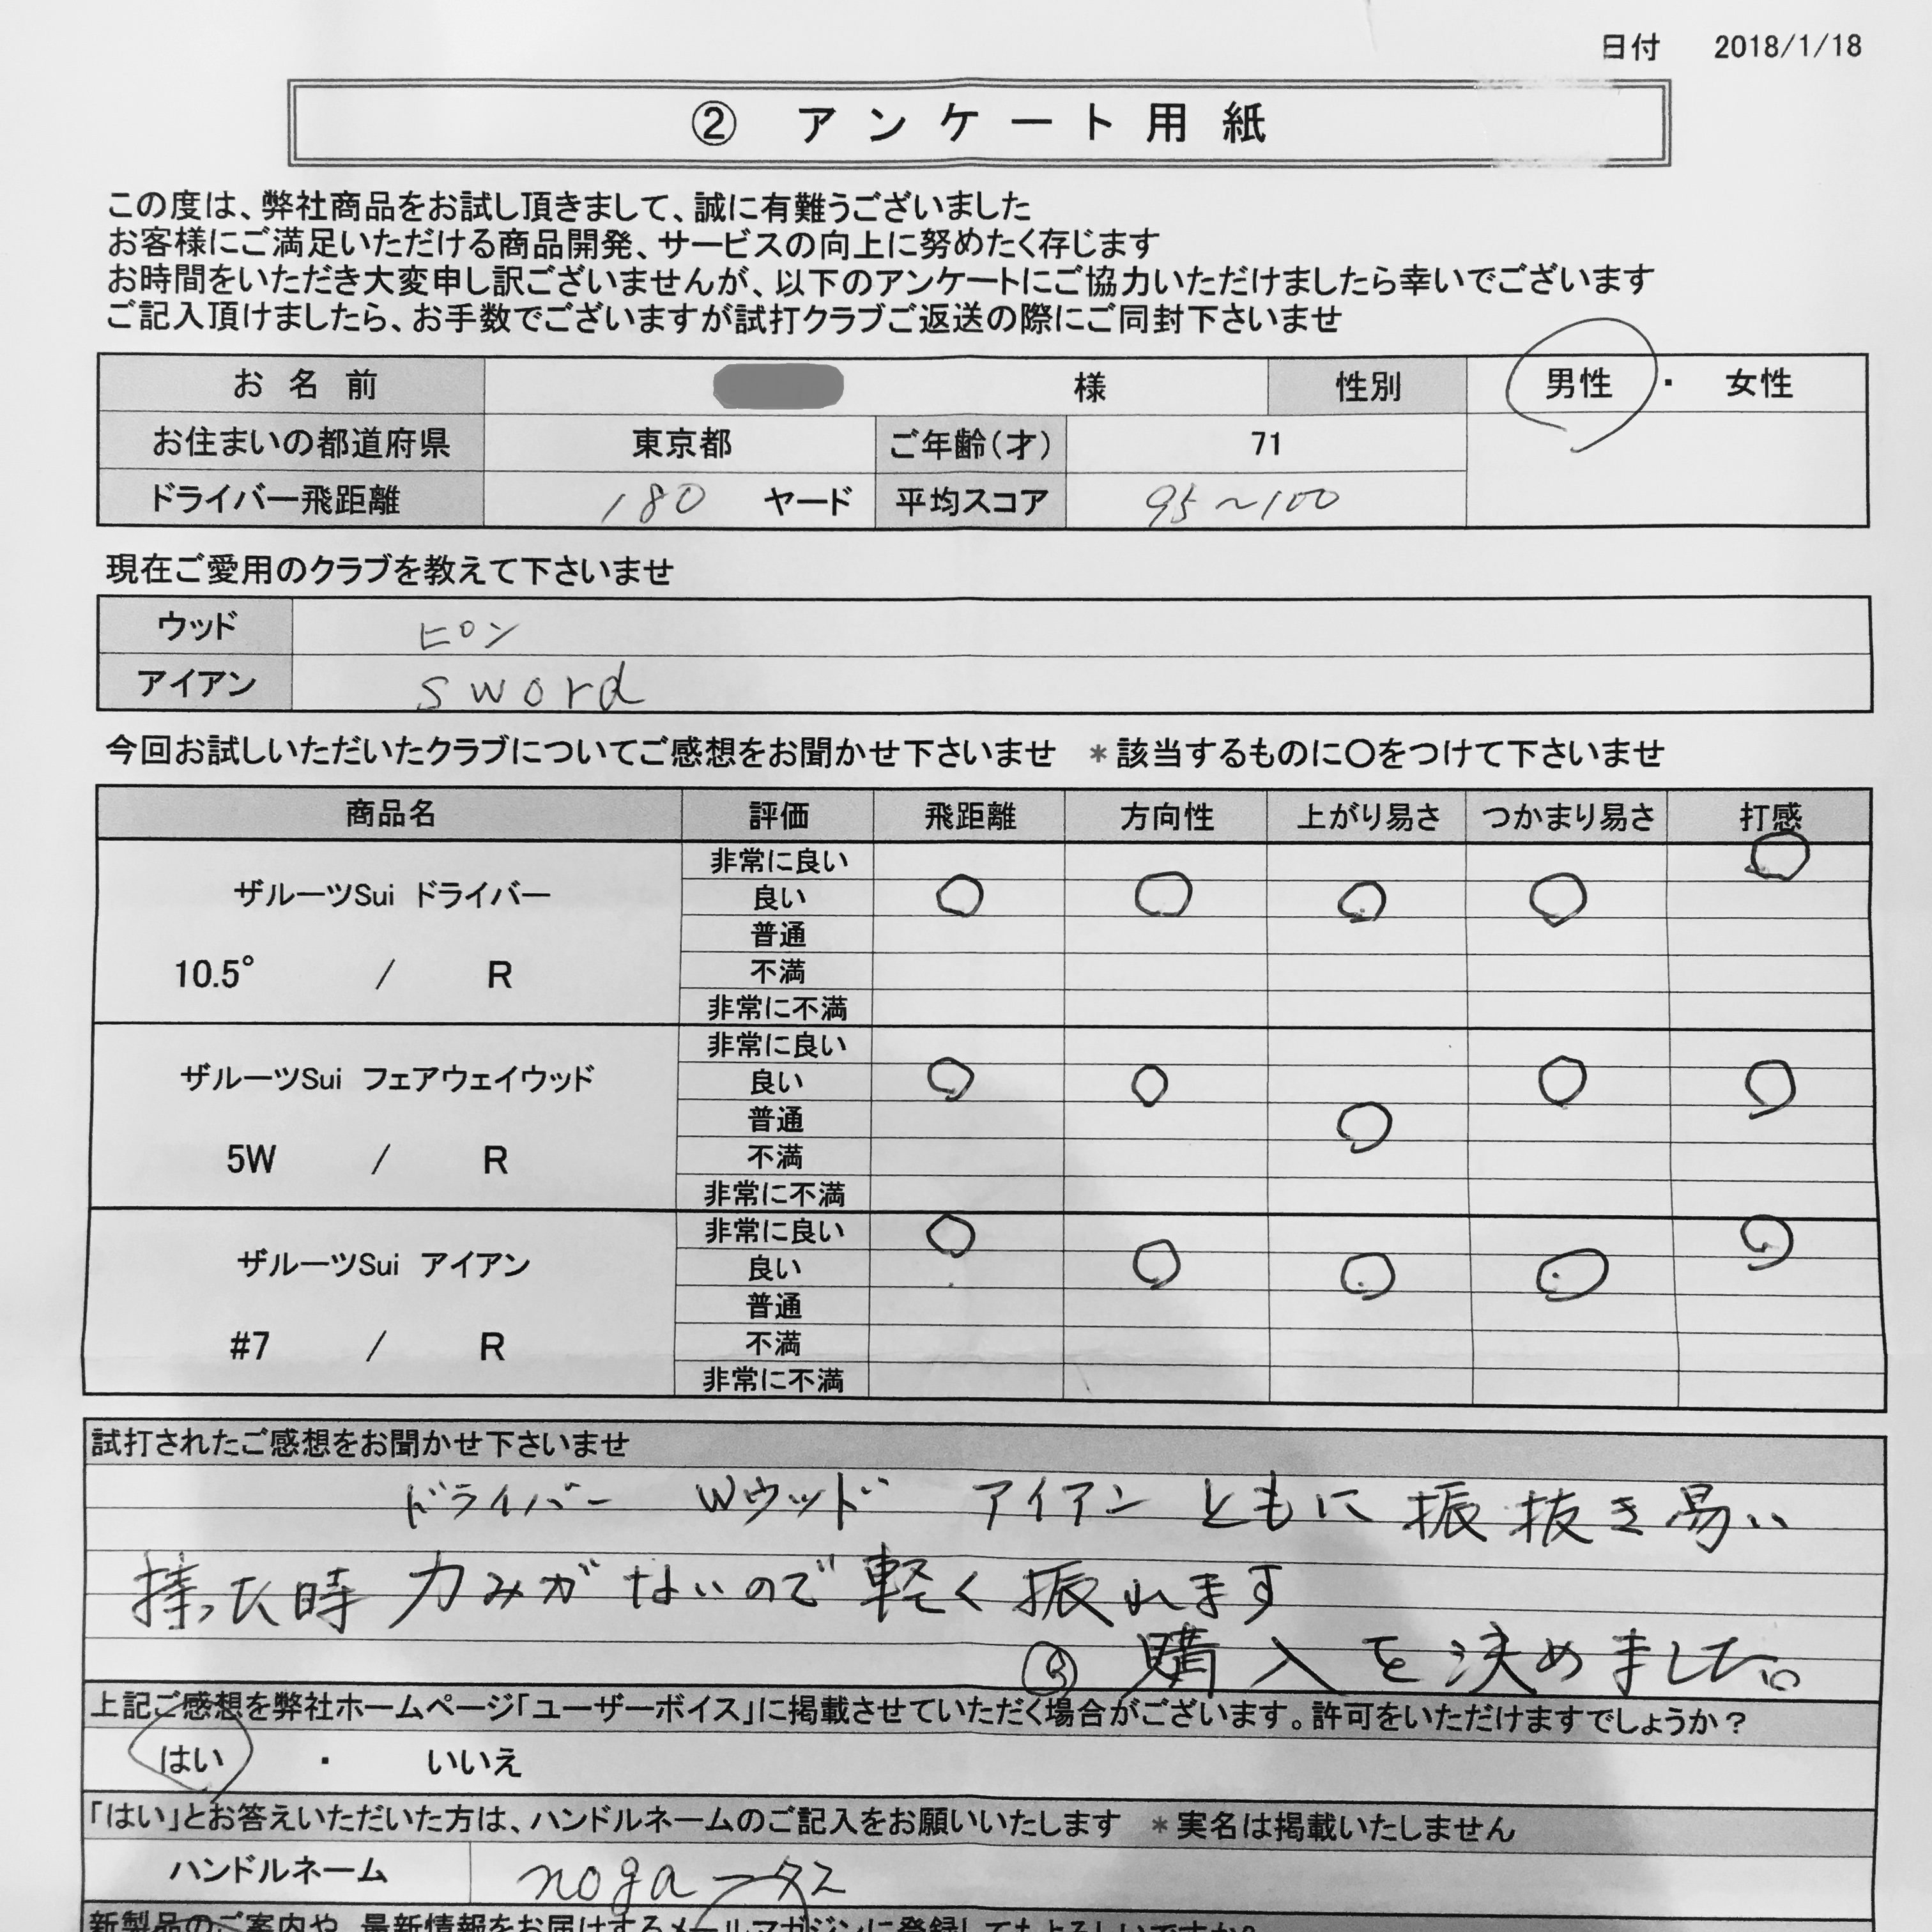 日付 2018/1/18
② アンケート用紙
この度は、弊社商品をお試し頂きまして、誠に有難うございました
お客様にご満足いただける商品開発、サービスの向上に努めたく存じます
お時間をいただき大変申し訳ございませんが、以下のアンケートにご協力いただけましたら幸いでございます
ご記入頂けましたら、お手数でございますが試打クラブご返送の際にご同封下さいませ
お名前 様 性別 男性 ・ 女性
お住まいの都道府県 東京都 ご年齢(才) 71
ドライバー飛距離 180 ヤード 平均スコア 95~100
現在ご愛用のクラブを教えて下さいませ
ウッド ピン
アイアン sword
今回お試しいただいたクラブについてご感想をお聞かせ下さいませ *該当するものに〇をつけて下さいませ
商品名 評価 飛距離 方向性 上がり易さ つかまり易さ 打感
ザルーツSui ドライバー
10.5° / R
非常に良い 〇
良い 〇 〇 〇 〇
普通
不満
非常に不満
ザルーツSui フェアウェイウッド
5W / R
非常に良い
良い 〇 〇 〇 〇
普通 〇
不満
非常に不満
ザルーツSui アイアン
#7 / R
非常に良い 〇 〇
良い 〇 〇 〇
普通
不満
非常に不満
試打されたご感想をお聞かせ下さいませ
ドライバー Wウッド アイアン ともに 振抜き易い
持った時 力みがないので 軽く 振れます
③ 購入を決めました。
上記ご感想を弊社ホームページ「ユーザーボイス」に掲載させていただく場合がございます。許可をいただけますでしょうか?
はい ・ いいえ
「はい」とお答えいただいた方は、ハンドルネームのご記入をお願いいたします *実名は掲載いたしません
ハンドルネーム nogaータス
新製品のご案内や、最新情報をお届けするメールマガジンに登録してもよろしいですか?